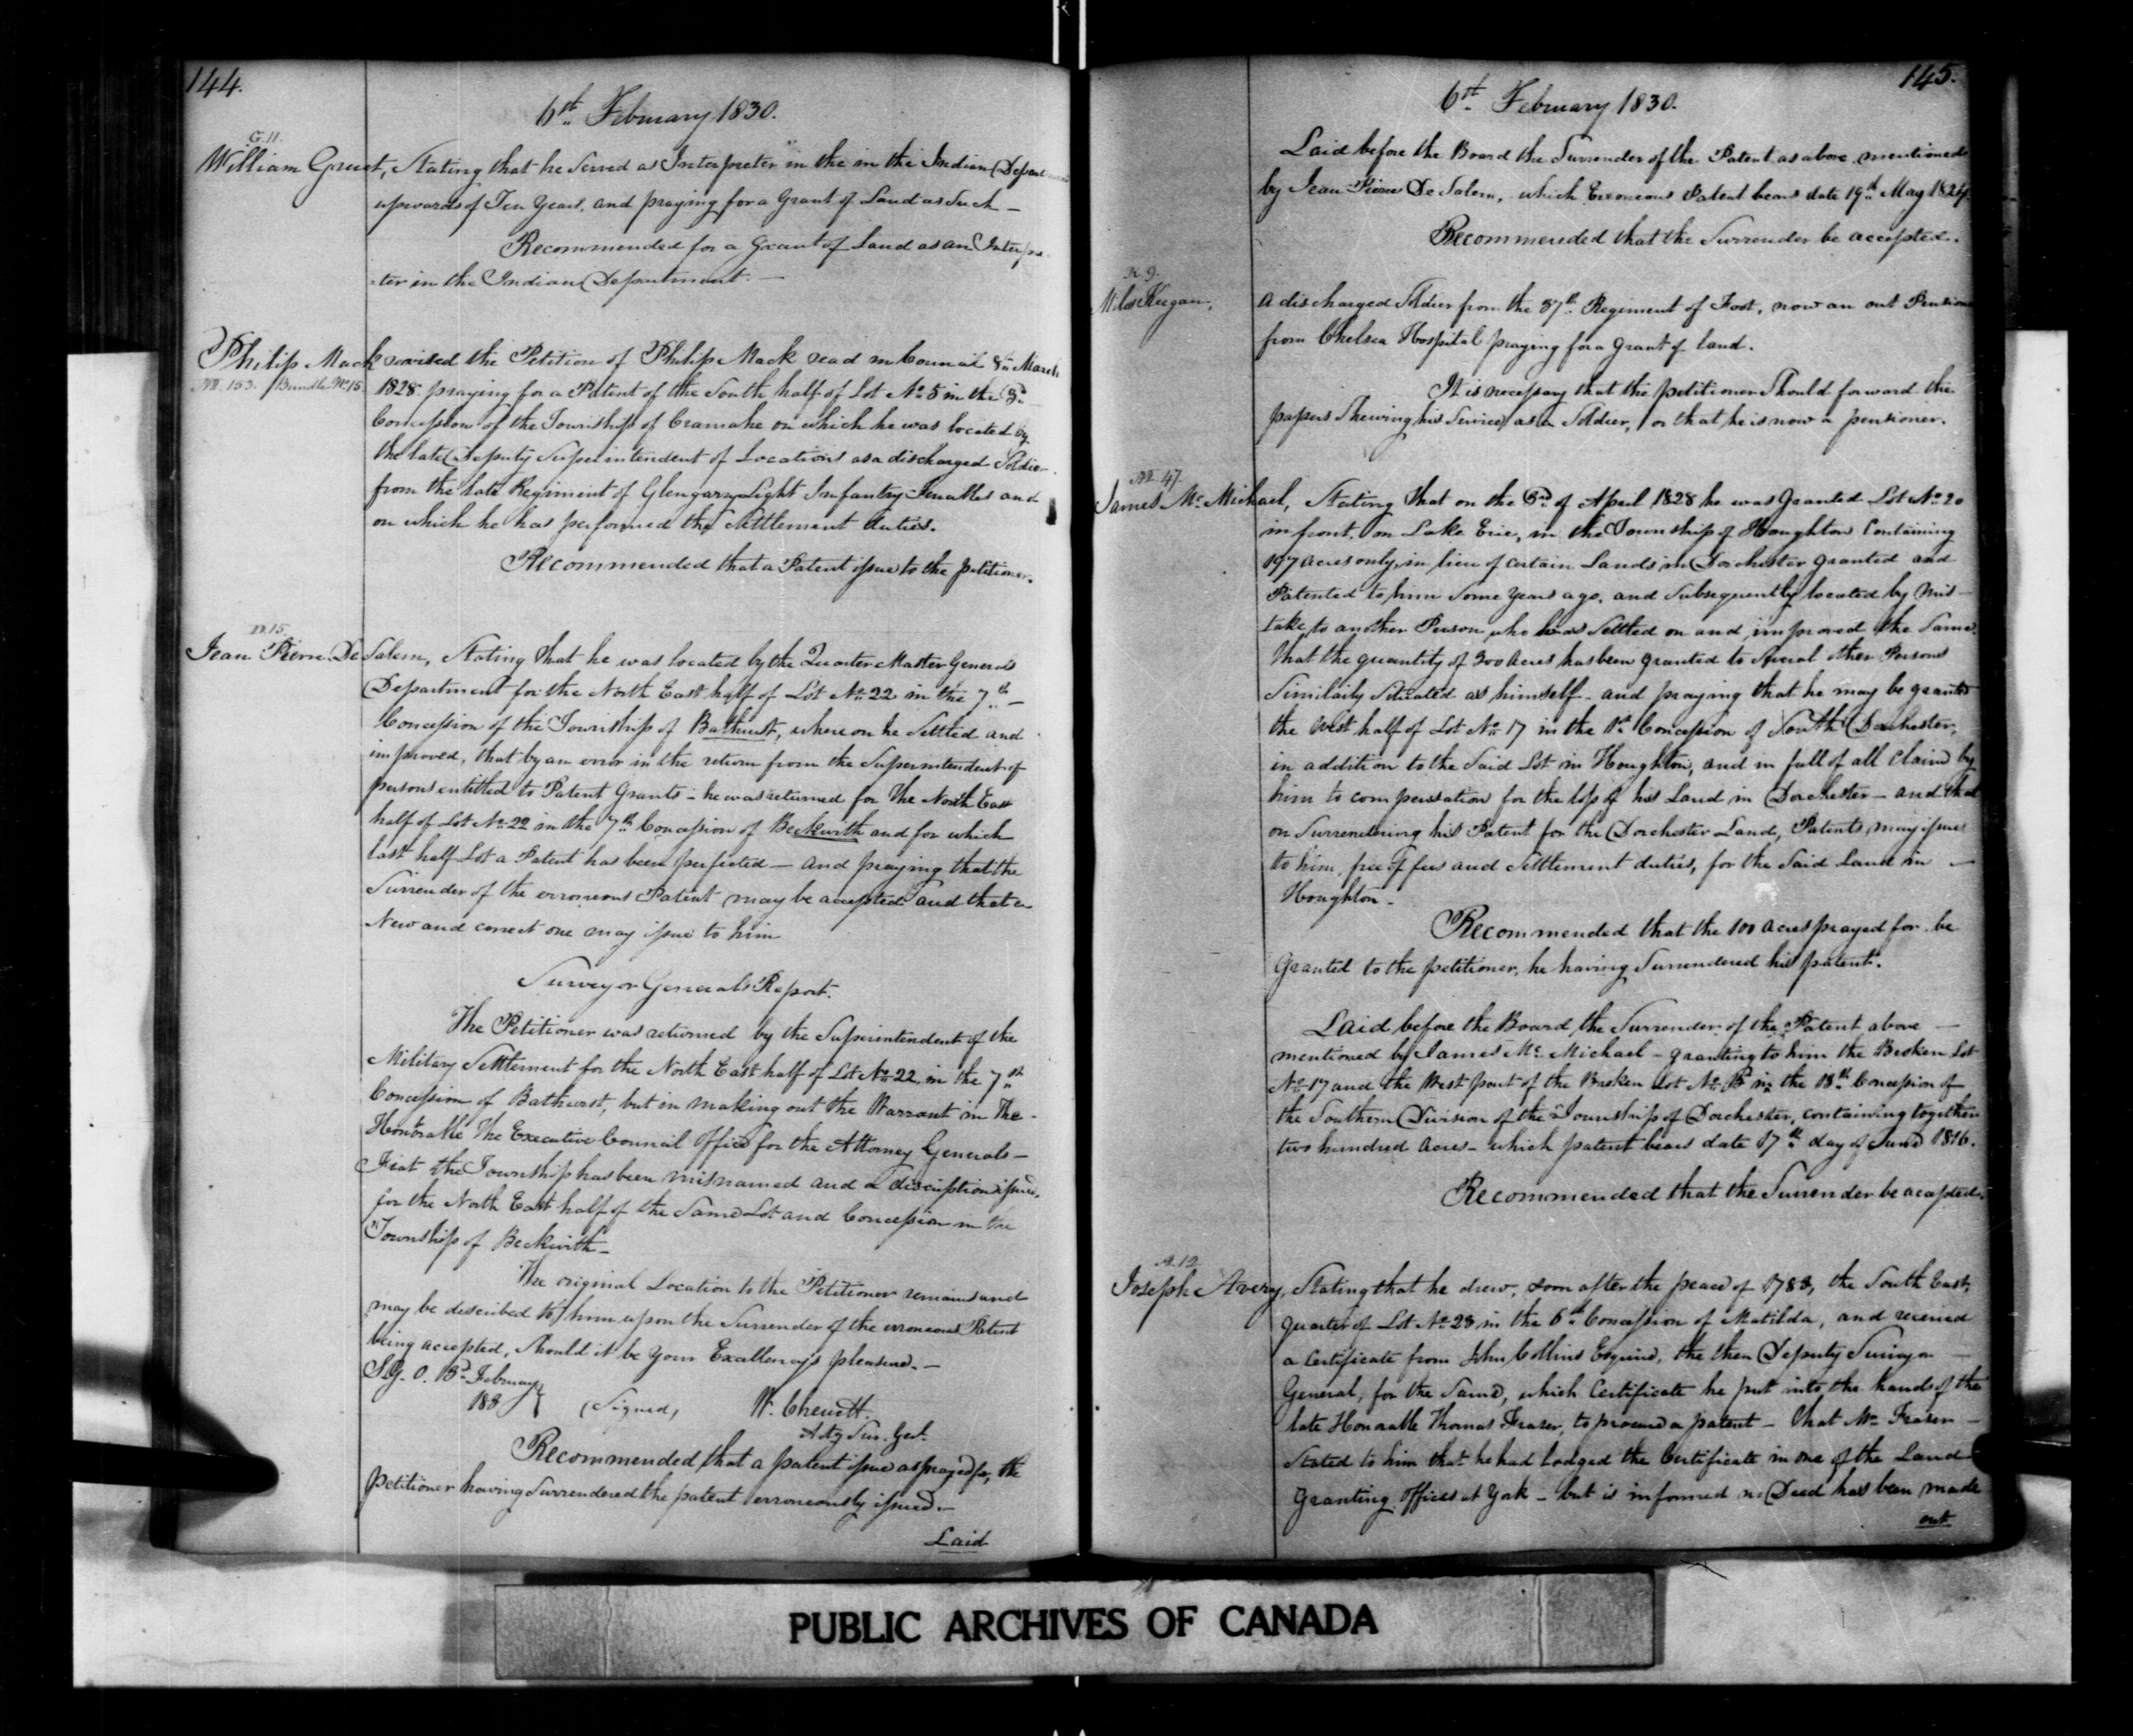 144.
6th. February 1830.
G. 11.
William Gruet, Stating that he Served as Interpreter in the in the Indian Department
upwards of Ten Years, and praying for a Grant of Land as Such —
Recommended for a Grant of Land as an Interpre-
-ter in the Indian Department. —
Philip Mack
M. 153. Bundle No. 15
revised the Petition of Philip Mack read in Council 8th March
1828 praying for a Patent of the South half of Lot No. 5 in the 3d.
Concession of the Township of Cramahe on which he was located by
the late Deputy Superintendent of Locations as a discharged Soldier
from the late Regiment of Glengarry Light Infantry Fencibles and
on which he has performed the Settlement duties.
Recommended that a Patent issue to the petitioner.
D. 15.
Jean Pierre De Salem, Stating that he was located by the Quarter Master Generals
Department for the North East half of Lot No. 22 in the 7th. —
Concession of the Township of Bathurst, where on he Settled and
improved, that by an error in the return from the Superintendent of
persons entitled to Patent Grants - he was returned for the North East
half of Lot No. 22 in the 7th. Concession of Beckwith and for which
last half Lot a Patent has been perfected — and praying that the
Surrender of the erroneous Patent may be accepted and that a
New and correct one may issue to him
Surveyor Generals Report.
The Petitioner was returned by the Superintendent of the
Military Settlement for the North East half of Lot No. 22, in the 7th.
Concession of Bathurst, but in making out the Warrant in The
Honorable The Executive Council Office for the Attorney Generals —
Fiat the Township has been misnamed and a discription issued,
for the North East half of the Same Lot and Concession in the
Township of Beckwith —
The original Location to the Petitioner remains and
may be described to him upon the Surrender of the erroneous Patent
being accepted, Should it be Your Excellency's pleasure. —
S. G. O. 3d. February
1830 (Signed,) W. Chewett.
Actg Sur. Genl.
Recommended that a patent issue as prayed for, the
petitioner having Surrendered the patent erroneously issued. —
Laid
145.
6th. February 1830.
Laid before the Board the Surrender of the Patent as above mentioned
by Jean Pierre De Salem, which Erroneous Patent bears date 19th. May 1824.
Recommended that the Surrender be accepted.
K. 9.
Miles Keegan,
A discharged Soldier from the 37th. Regiment of Foot, now an out Pensioner
from Chelsea Hospital praying for a Grant of land.
It is necessary that the petitioner Should forward the
papers Shewing his Service as a Soldier, or that he is now a pensioner.
M. 47.
James Mc. Michael, Stating That on the 3rd. of April 1828 he was Granted Lot No. 20
in front, on Lake Erie, in the Township of Houghton Containing
197 acres only, in lieu of certain Lands in Dorchester granted and
Patented to him Some Years ago, and Subsequently located by Mis-
take to another Person who has Settled on and improved the Same.
That the quantity of 300 acres has been granted to Several other Persons
Similarly Situated as himself - and praying that he may be granted
the West half of Lot No. 17 in the 1st. Concession of South Dorchester,
in addition to the Said Lot in Houghton, and in full of all Claim by
him to compensation for the loss of his Land in Dorchester — and that
on Surrendering his Patent for the Dorchester Land, Patents may issue
to him, free of fees and Settlement duties, for the Said Land in —
Houghton. -
Recommended that the 100 acres prayed for be
Granted to the petitioner, he having Surrendered his patent.
Laid before the Board, the Surrender of the Patent above —
mentioned by James Mc. Michael - granting to him the Broken Lot
No. 17 and the West part of the Broken Lot No. in the Concession of
the Southern Division of the Township of Dorchester, containing together
two hundred Acres - which patent bears date 17th. day of June 1816.
Recommended that the Surrender be accepted.
A. 12.
Joseph Avery, Stating that he drew, soon after the peace of 1783, the South East,
quarter of Lot No. 28 in the 6th. Concession of Matilda, and received
a Certificate from John Collins Esquire, the then Deputy Surveyor —
General, for the Same, which Certificate he put into the hands of the
late Honorable Thomas Fraser, to procure a patent — that Mr. Fraser —
Stated to him that he had lodged the Certificate in one of the Land
Granting Offices at York — but is informed no Deed has been made
out
PUBLIC ARCHIVES OF CANADA